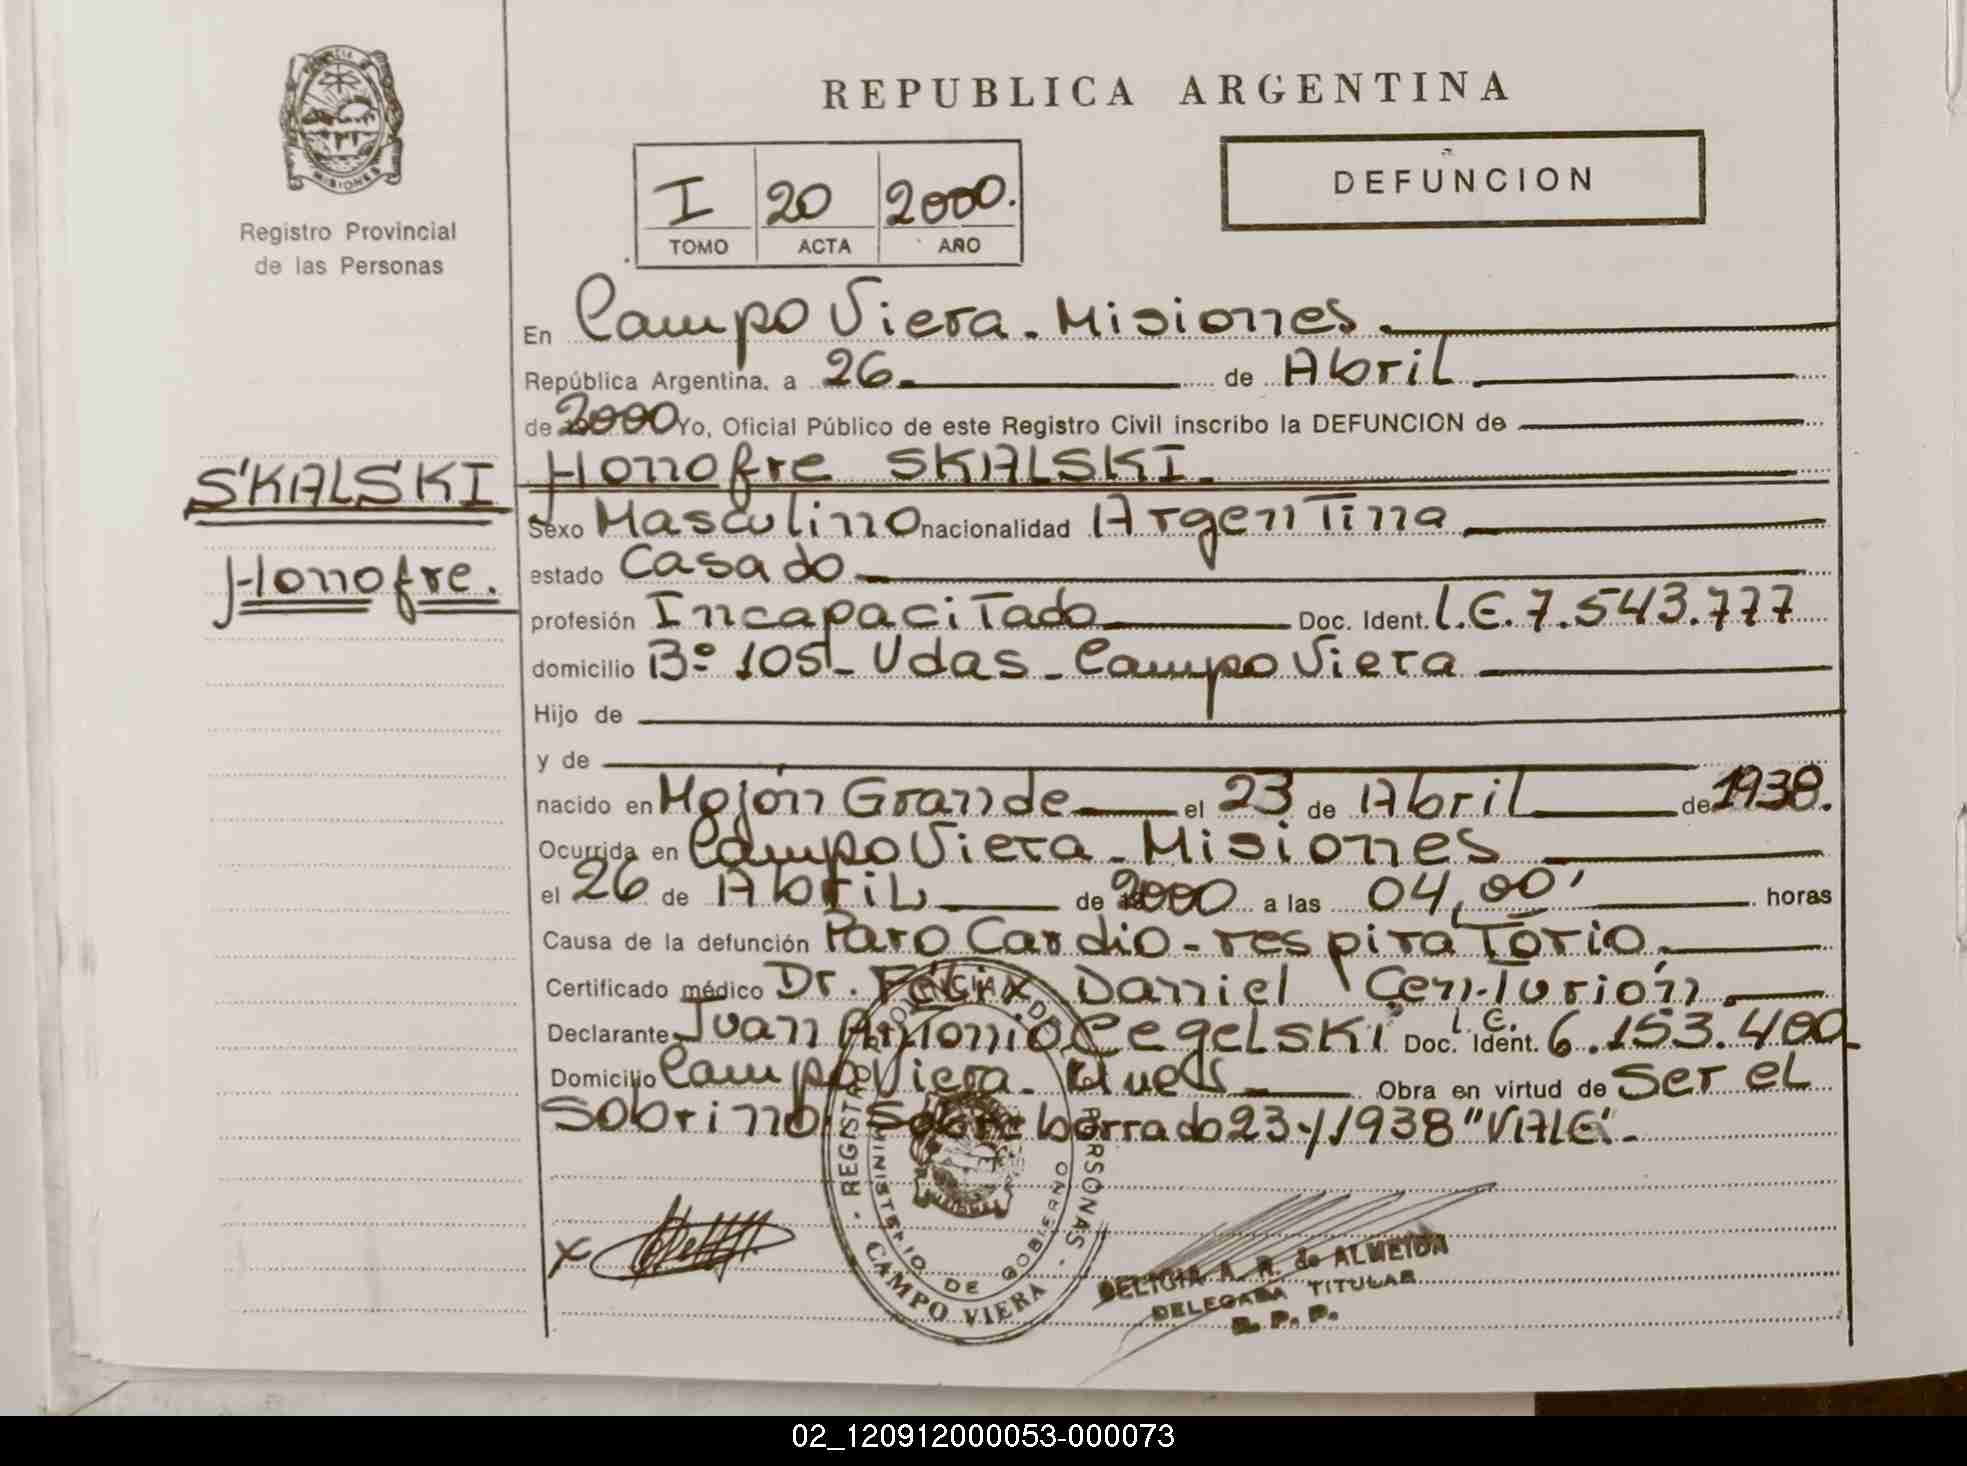 REPUBLICA ARGENTINA
PROVINCIA DE
MISIONES
Registro Provincial
de las Personas
I 20 2000.
TOMO ACTA AÑO
DEFUNCION
En Campo Viera - Misiones
República Argentina, a 26 de Abril
de 2000 Yo, Oficial Público de este Registro Civil inscribo la DEFUNCION de
SKALSKI
Honofre.
Honofre SKALSKI
Sexo Masculino nacionalidad Argentina
estado Casado
profesión Incapacitado Doc. Ident. L.E. 7.543.777
domicilio Bº 105 - Vdas - Campo Viera
Hijo de
y de
nacido en Mojón Grande el 23 de Abril de 1938.
Ocurrida en Campo Viera - Misiones
el 26 de Abril de 2000 a las 04,00' horas
Causa de la defunción Paro Cardio-respiratorio
Certificado médico Dr. Félix Daniel Centurión
Declarante Juan Antonio Cegelski Doc. Ident. L.E. 6.153.400
Domicilio Campo Viera - Mnes Obra en virtud de Ser el
Sobrino. Sobre borrado 23-/1938 "VALE".-
REGISTRO PROVINCIAL DE PERSONAS
MINISTERIO DE GOBIERNO
CAMPO VIERA
x
DELICIA A. R. de ALMEIDA
DELEGADA TITULAR
R. P. P.
02_120912000053-000073